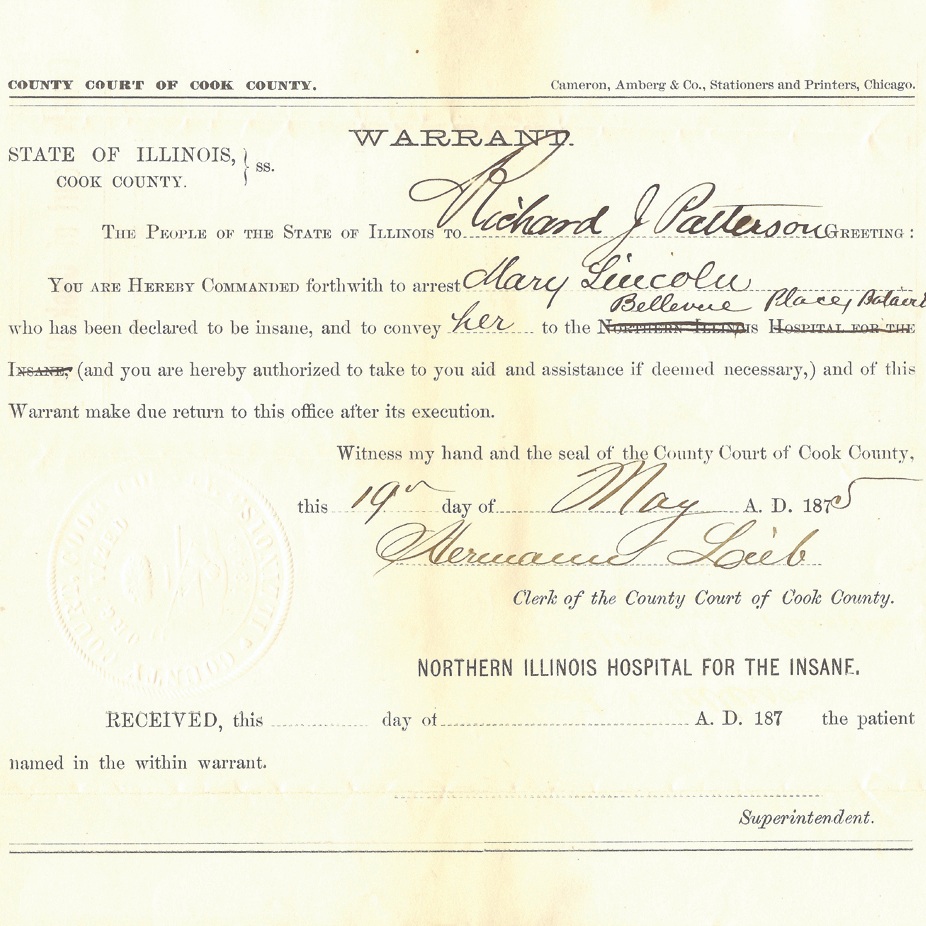 COUNTY COURT OF COOK COUNTY. Cameron, Amberg & Co., Stationers and Printers, Chicago.
WARRANT.
STATE OF ILLINOIS, } ss.
COOK COUNTY.
THE PEOPLE OF THE STATE OF ILLINOIS TO Richard J Patterson GREETING:
YOU ARE HEREBY COMMANDED forthwith to arrest Mary Lincoln
Bellevue Place, Batavia
who has been declared to be insane, and to convey her to the NORTHERN ILLINOIS HOSPITAL FOR THE
INSANE, (and you are hereby authorized to take to you aid and assistance if deemed necessary,) and of this
Warrant make due return to this office after its execution.
Witness my hand and the seal of the County Court of Cook County,
this 19 day of May A. D. 1875
Hermann Lieb
Clerk of the County Court of Cook County.
NORTHERN ILLINOIS HOSPITAL FOR THE INSANE.
RECEIVED, this day of A. D. 187 the patient
named in the within warrant.
Superintendent.